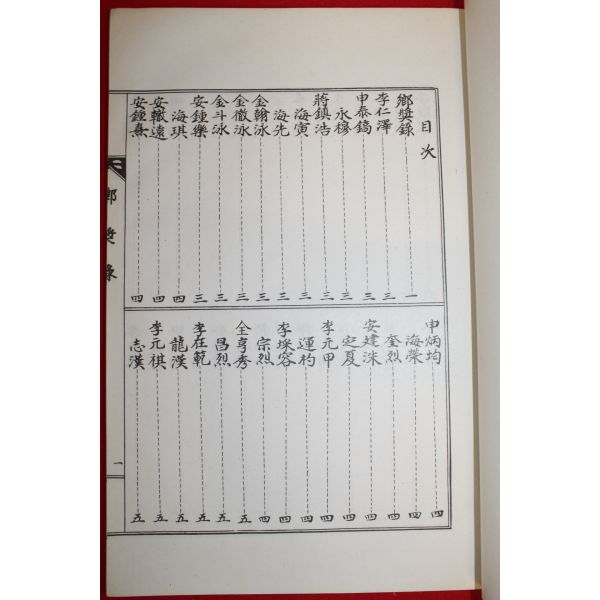 目次
鄕獎錄 一
李仁澤 三
申泰鎬 三
永穆 三
蔣鎮浩 三
海寅 三
海先 三
金翰泳 三
金徹泳 三
金斗泳 三
安鍾樂 三
海琪 四
安轍遠 四
安鍾熹 四
申炳均 四
海榮 四
奎烈 四
安建洙 四
定夏 四
李元甲 四
運杓 四
李埰容 四
宗烈 四
全亨秀 五
昌烈 五
李在範 五
龍漢 五
李元祺 五
志漢 五
鄕獎錄
一